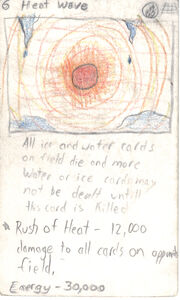 6 Heat Wave
All ice and water cards
on field die and more
water or ice cards may
not be dealt untill
this card is killed
Rush of Heat - 12,000
damage to all cards on opponents
field.
Energy - 30,000